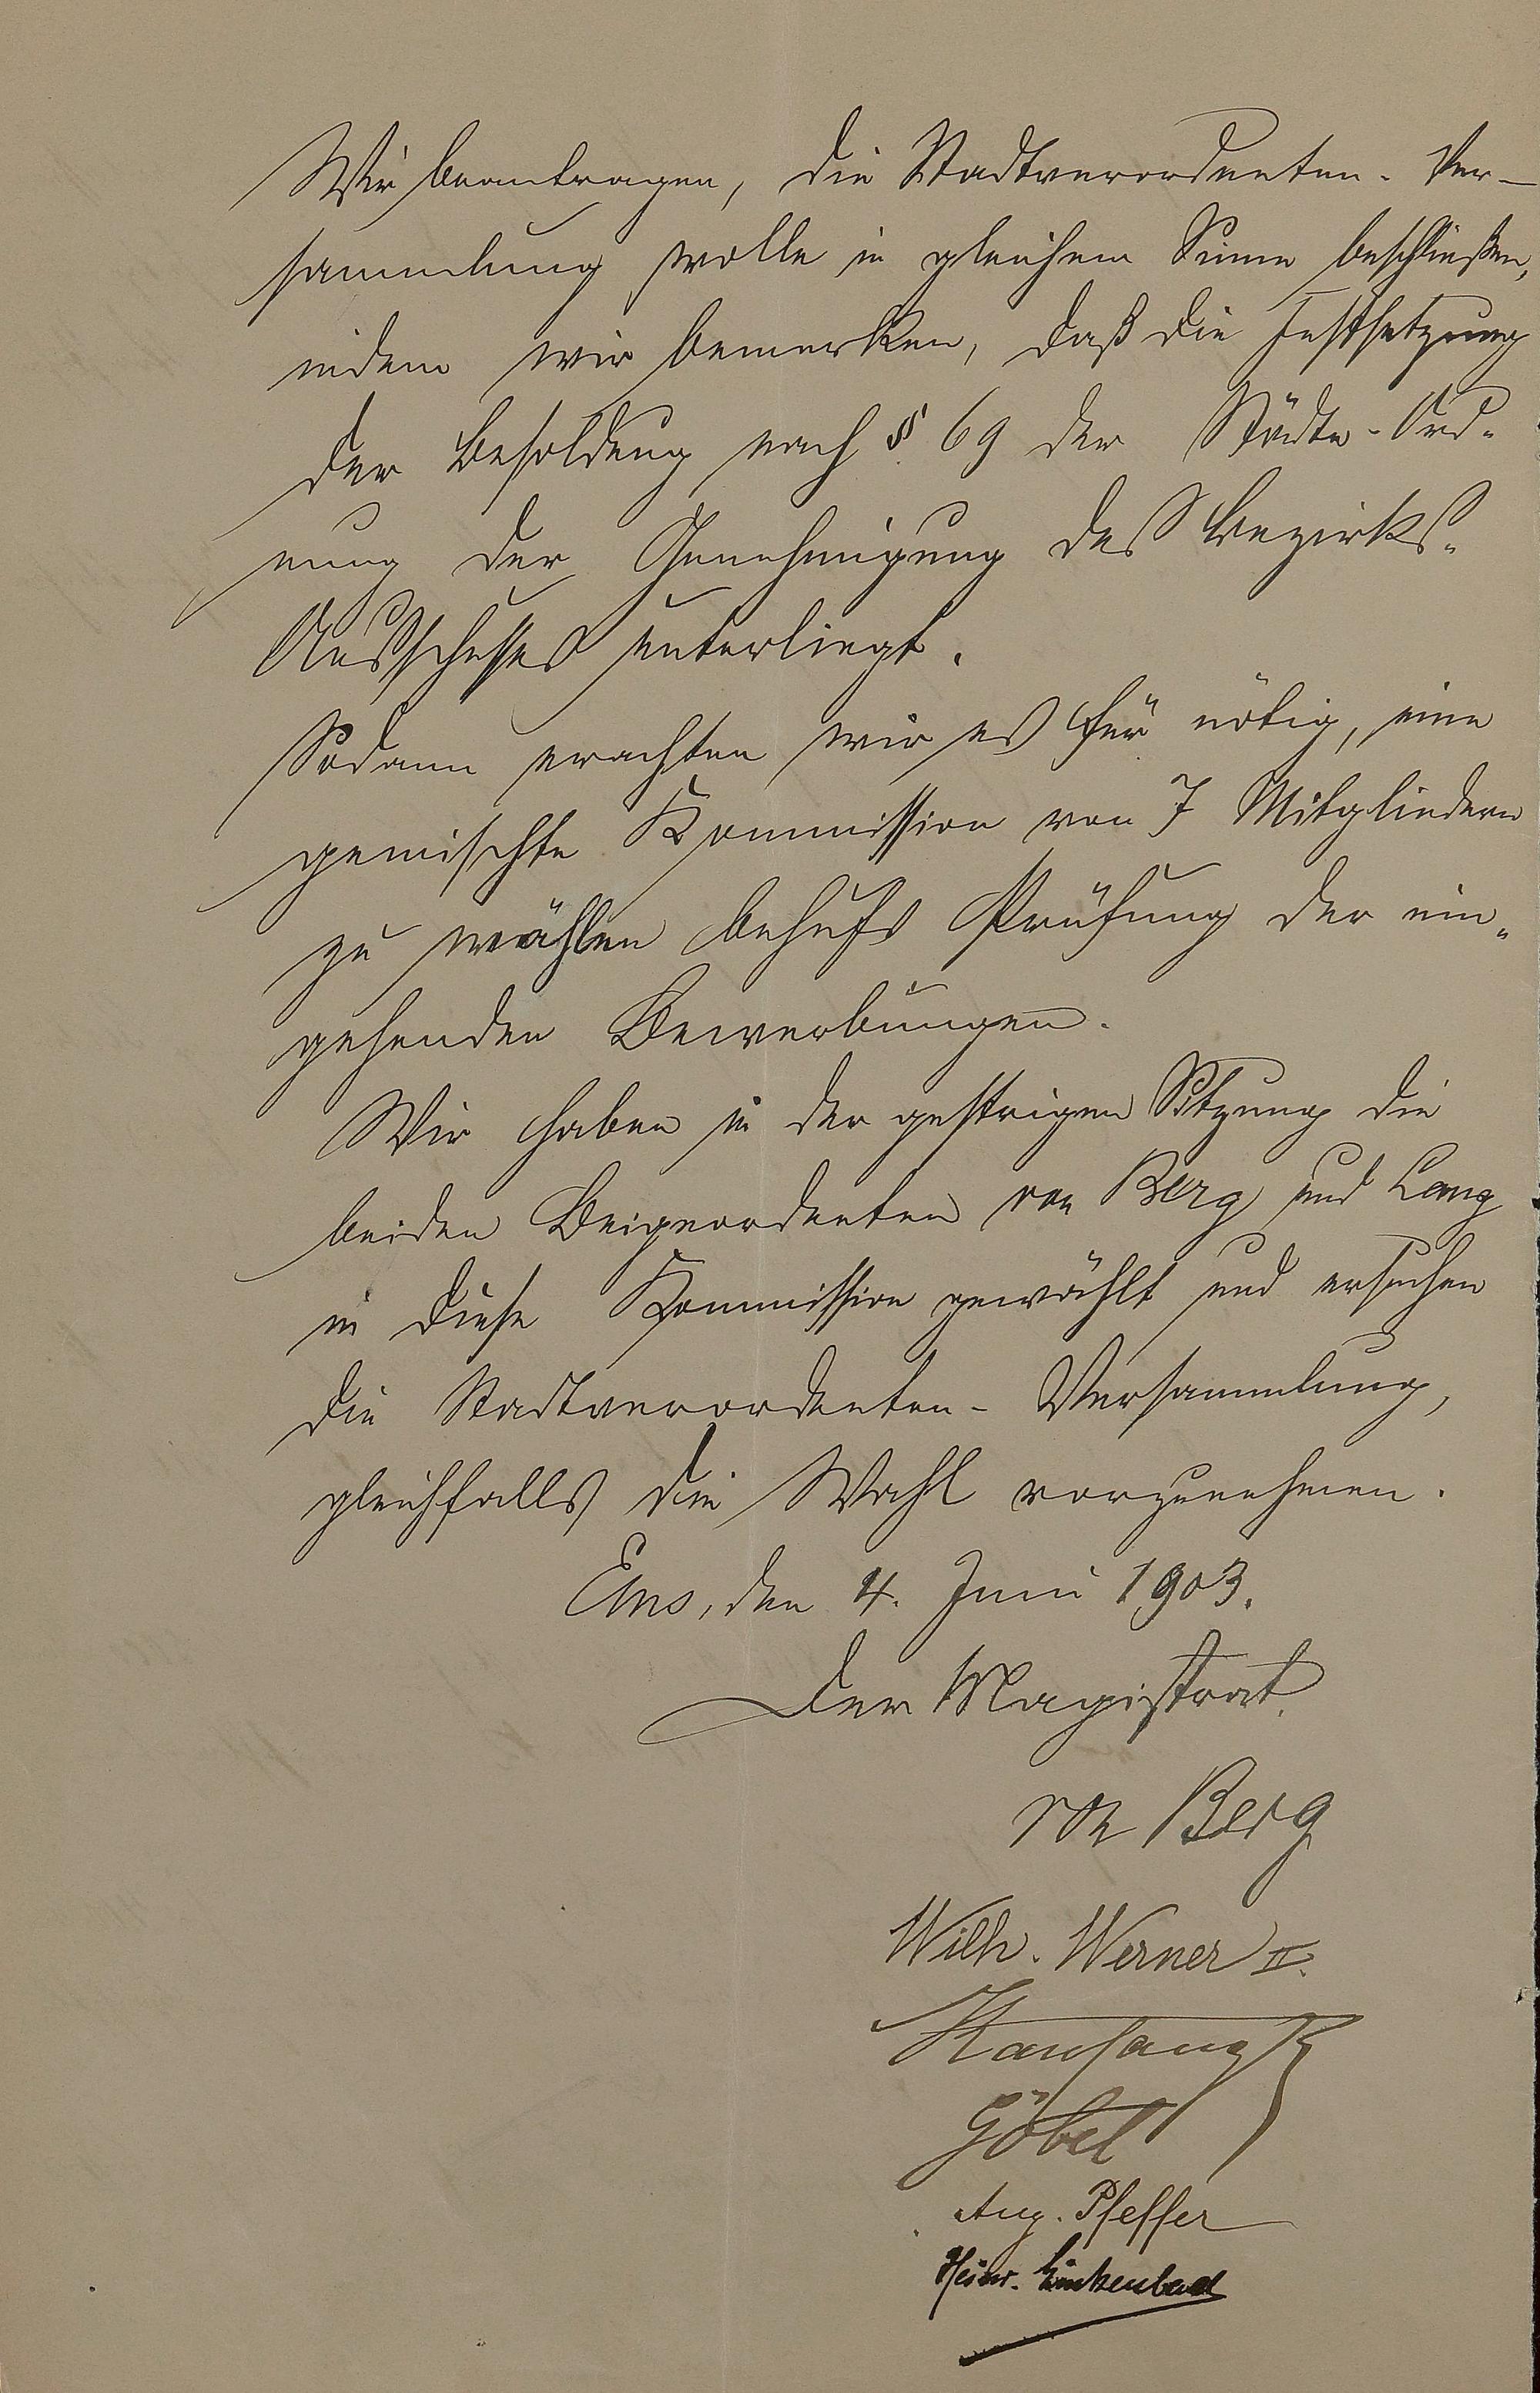 Wir beantragen, die Stadtverordneten-Ver-
sammlung wolle in gleichem Sinne beschließen,
indem wir bemerken, daß die Festsetzung
der Besoldung nach § 69 der Städte-Ord-
nung der Genehmigung des Bezirks-
Ausschusses unterliegt.
Sodann erachten wir es für nötig, eine
gemischte Kommission von 7 Mitgliedern
zu wählen behufs Prüfung der ein-
gehenden Bewerbungen.
Wir haben in der gestrigen Sitzung die
beiden Beigeordneten von Berg und Lang
in diese Kommission gewählt und ersuchen
die Stadtverordneten-Versammlung,
gleichfalls die Wahl vorzunehmen.
Ems, den 4. Juni 1903.
Der Magistrat.
von Berg
Wilh. Werner II.
Göbel
Aug. Pfeffer
Heinr. Linkenbach